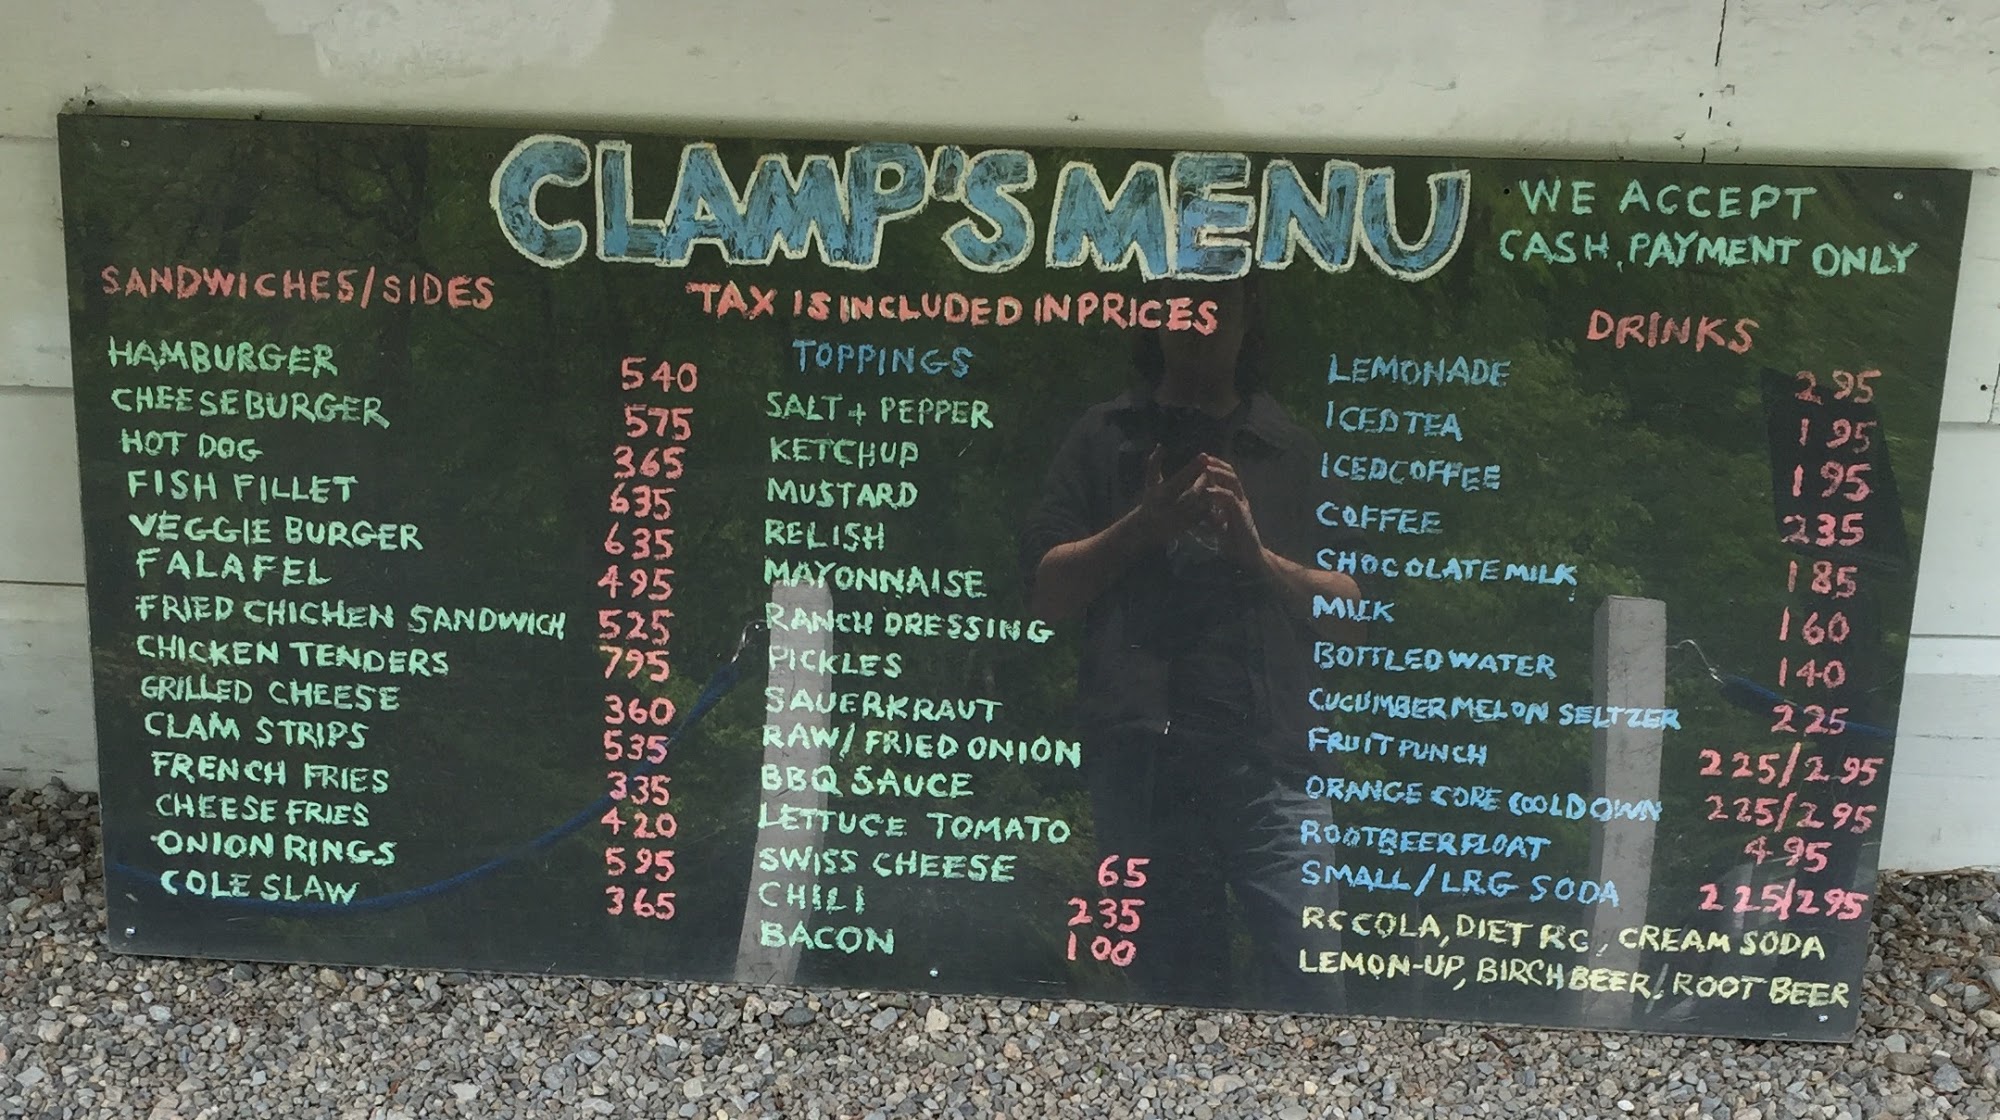 CLAMP'S MENU
WE ACCEPT
CASH, PAYMENT ONLY
TAX IS INCLUDED IN PRICES
SANDWICHES/SIDES
HAMBURGER 540
CHEESEBURGER 575
HOT DOG 365
FISH FILLET 635
VEGGIE BURGER 635
FALAFEL 495
FRIED CHICHEN SANDWICH 525
CHICKEN TENDERS 795
GRILLED CHEESE 360
CLAM STRIPS 535
FRENCH FRIES 335
CHEESE FRIES 420
ONION RINGS 595
COLE SLAW 365
TOPPINGS
SALT + PEPPER
KETCHUP
MUSTARD
RELISH
MAYONNAISE
RANCH DRESSING
PICKLES
SAUERKRAUT
RAW/FRIED ONION
BBQ SAUCE
LETTUCE TOMATO
SWISS CHEESE 65
CHILI 235
BACON 100
DRINKS
LEMONADE 2.95
ICED TEA 195
ICED COFFEE 195
COFFEE 235
CHOCOLATE MILK 185
MILK 160
BOTTLED WATER 140
CUCUMBER MELON SELTZER 225
FRUIT PUNCH 225/2.95
ORANGE CORE COOLDOWN 225/295
ROOTBEER FLOAT 495
SMALL/LRG SODA 225/295
RC COLA, DIET RC, CREAM SODA
LEMON-UP, BIRCH BEER, ROOT BEER